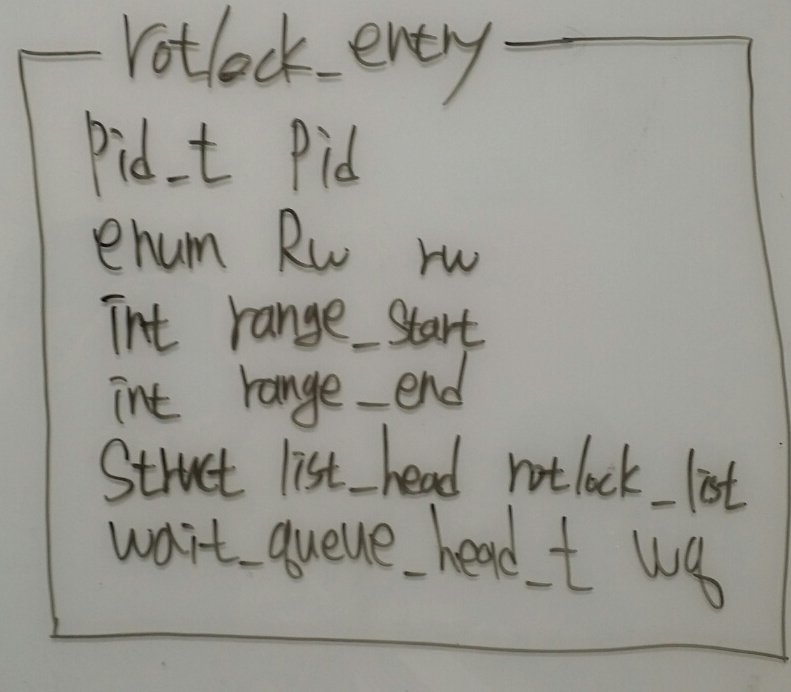 rotlock_entry
Pid_t Pid
enum Rw rw
int range_start
int range_end
Struct list_head rotlock_list
wait_queue_head_t wq